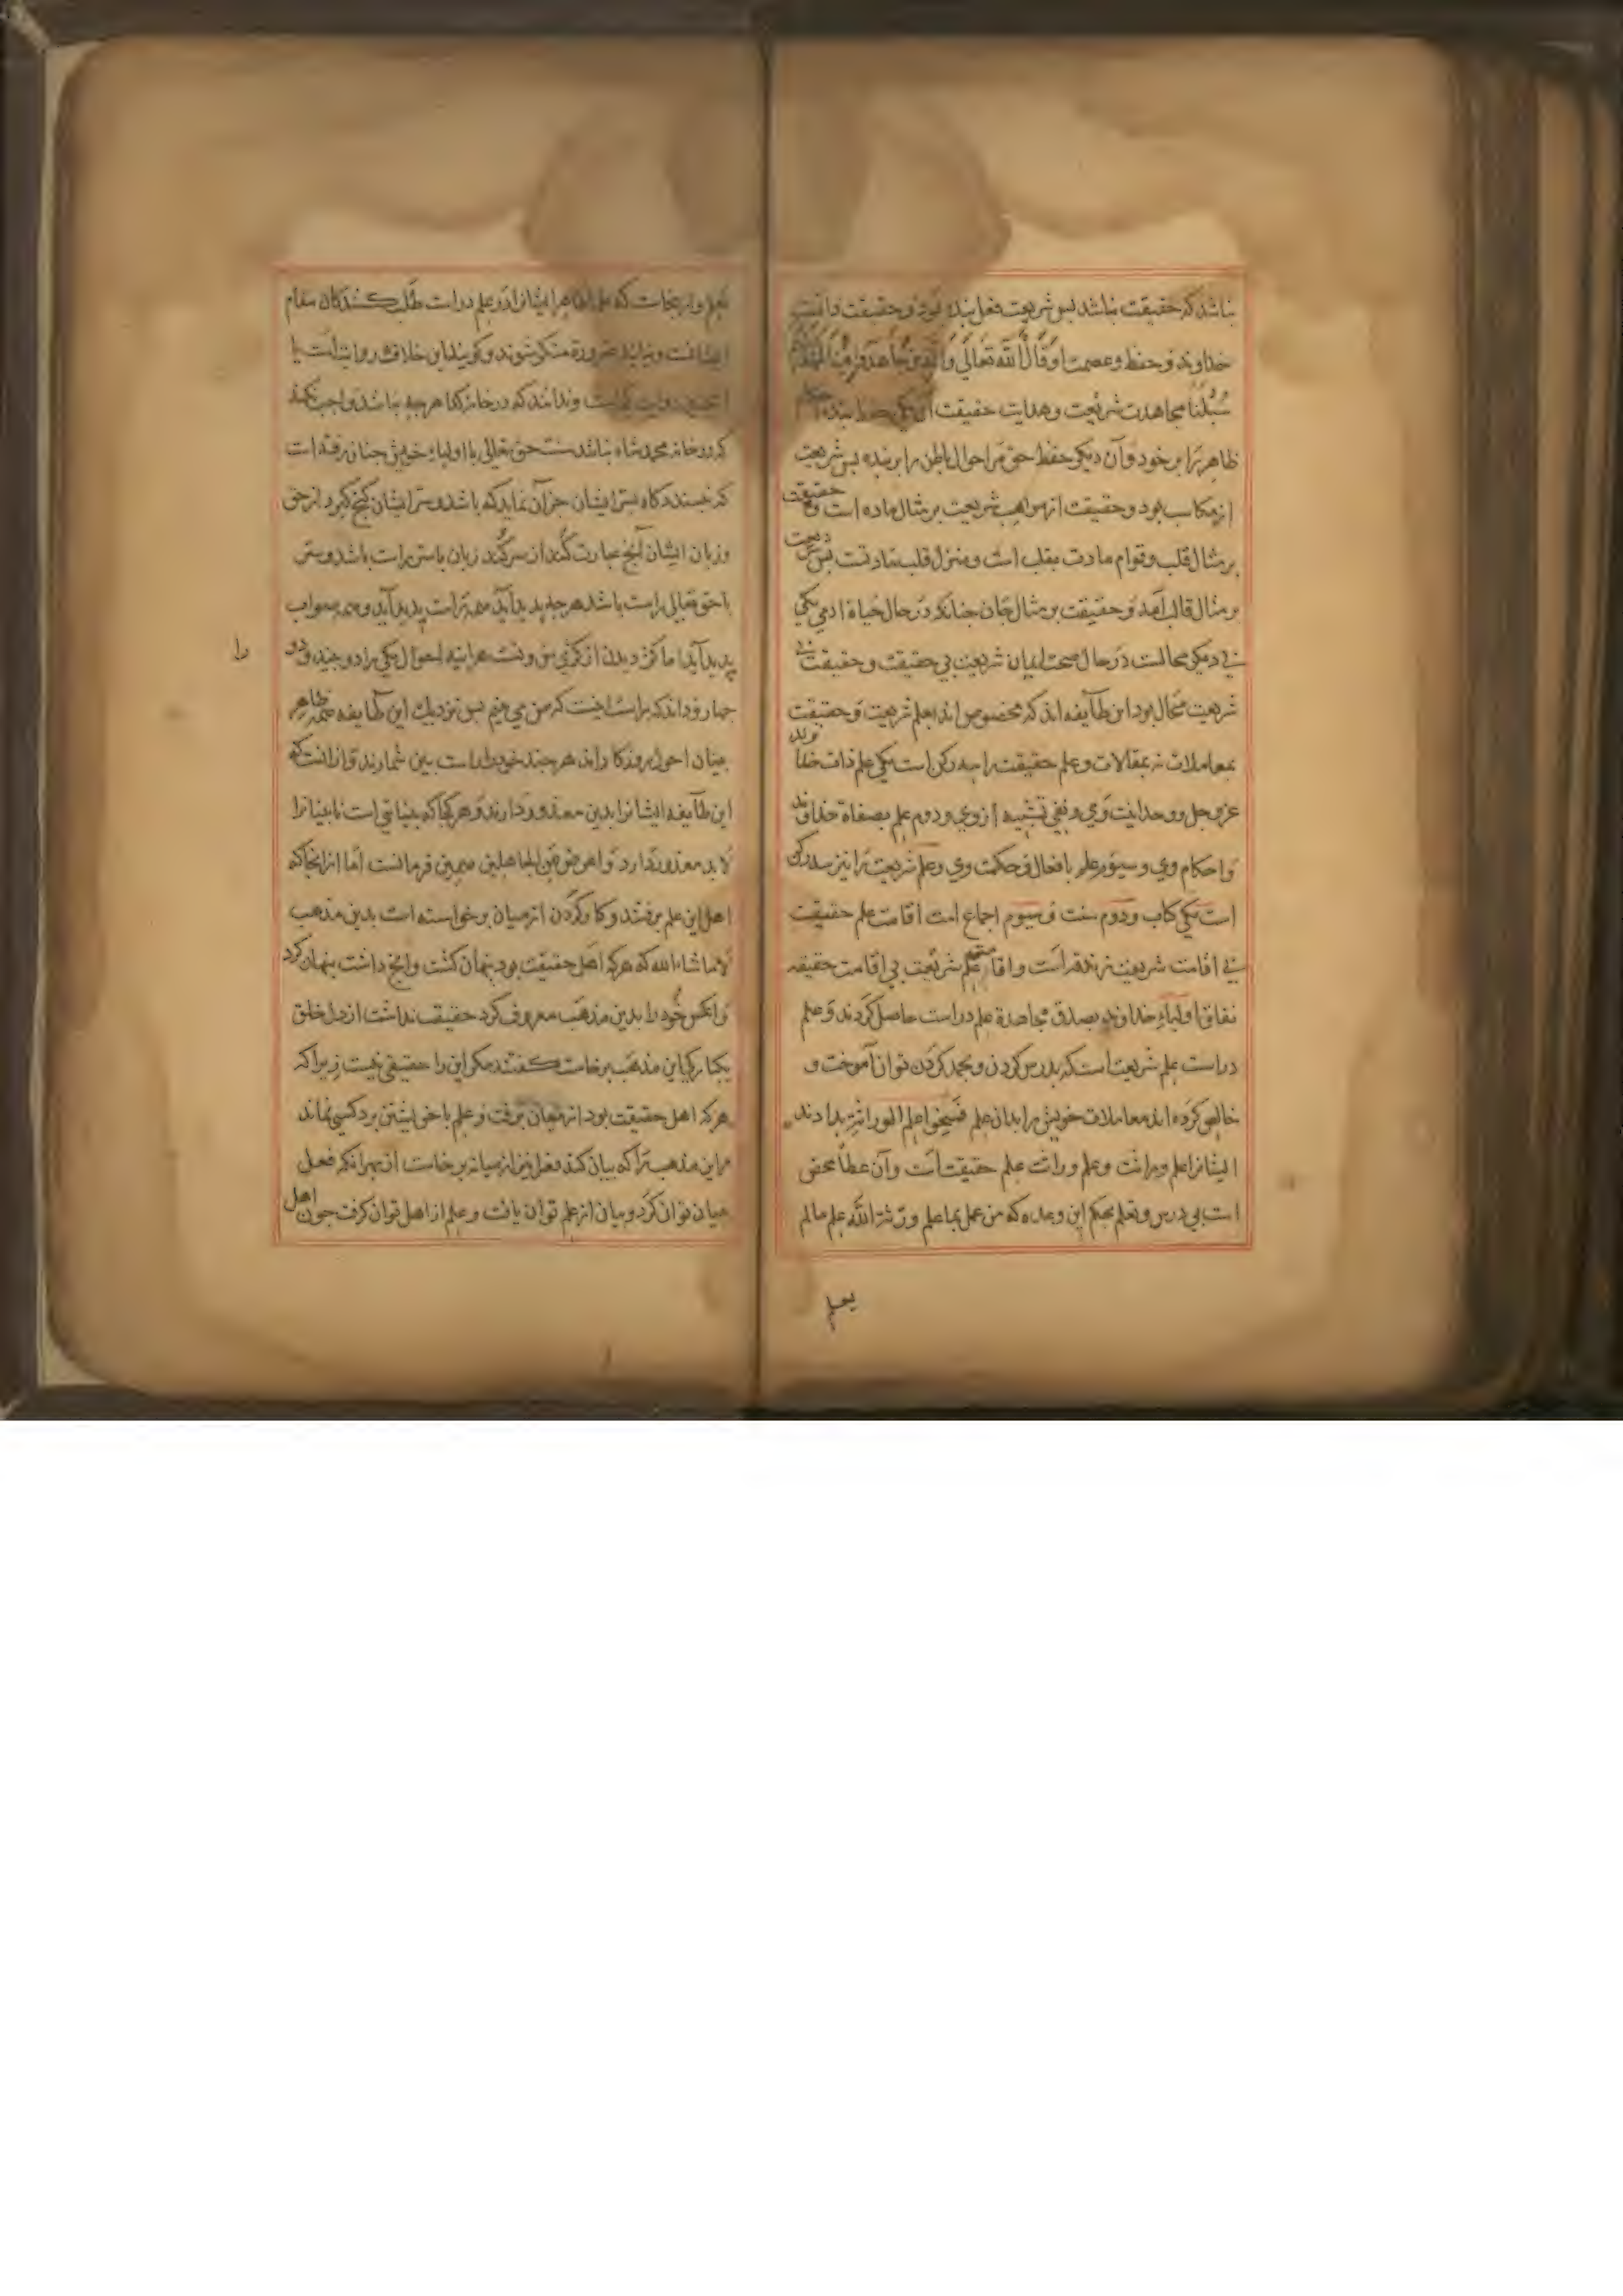 نباشد که حقیقت نباشد پس شریعت فعل بنده بود و حقیقت داشت
خداوند و حفظ و عصمت او قَالَ اللّه تَعَالَی وَالَّذِینَ جَاهَدُوا فِینَا لَنَهْدِیَنَّهُمْ
سُبُلَنَا مجاهدت شریعت و هدایت حقیقت آن یکی حفظ بنده
ظاهر را بر خود و آن دیکر حفظ حق مر احوال باطن را بر بنده پس شریعت
از مکاسب بود و حقیقت از مواهب شریعت بر مثال ماده است و حقیقت
بر مثال قلب و قوام مادت بقلب است و منزل قلب مادتست پس شریعت
بر مثال قالب آمد و حقیقت بر مثال جان چنانکه در حال حیاة ادمی یکی
بی دیکر محالست در حال صحت ایمان شریعت بی حقیقت و حقیقت بی
شریعت محال بود این طایفه اند که مخصوص اند بعلم شریعت و حقیقت
بمعاملات نه بمقالات و علم حقیقت را سه رکن است یکی علم ذات خداوند
عز و جل و وحدانیت وی و نفی تشبیه از وی و دوم علم بصفاة خداوند
و احکام وی و سیوم علم بافعال و حکمت وی و علم شریعت را نیز سه رکن
است یکی کتاب و دوم سنت و سیوم اجماع امت اقامت علم حقیقت
بی اقامت شریعت زندقه است و اقامت علم شریعت بی اقامت حقیقه
نفاق اولیاء خداوند بصدق مجاهدة علم دراست حاصل کردند و علم
دراست علم شریعت است که بدرس کردن و بجهد کردن توان آموخت و
خالص کرده اند معاملات خویش را بدان علم فمنحوا علم الوراثة بدادند
ایشانرا علم وراثت و علم وراثت علم حقیقت است و آن عطا محض
است بی درس و تعلم بحکم این وعده که من عمل بما علم ورثه الله علم مالم
یعلم
که علم ظاهر ایشانرا در علم دراست طلب کنندکان مقام
ضرورة منکر شوند و کویند این خلاف روایتست یا
و ندانند که در خانه کدا هر چه نباشد واجب نکند
که در خانه محمد شاه نباشد سنت حق تعالی با اولیاء خویش چنان رفته است
که خسبندکاه سر ایشان جز آن نماید که باشد و سر ایشان کج کیرد از حق
و زبان ایشان آنچ عبارت کند از سر کند زبان با سر راست باشد و سر
با حق تعالی راست باشد هر چه پدید آید همه راست پدید آید و همه صواب
پدید آید اما کژ دیدن از کژی من و تست هراینه احول یکی را دو بیند و دو را
چهار و داند که راست اینست که من می بینم پس نزدیک این طایفه همه ظاهر
بینان احول روزکار اند هر چند خود را راست بین شمارند و از انست که
این طایفه ایشانرا بدین معذور دارند و هر کجا که بینایی است نابینا را
لابد معذور دارد و اعرض عن الجاهلین همین فرمانست اما از انجا که
اهل این علم برفتند و کار کردن از میان برخواسته است بدین مذهب
الا ماشاءالله که هر که اهل حقیقت بود پنهان کشت و آنچ داشت پنهان کرد
و انکس خود را بدین مذهب معروف کرد حقیقت نداشت از دل خلق
یکبارکی این مذهب برخاست کفتند مکر این را حقیقتی نیست زیرا که
هر که اهل حقیقت بود از میان برفت و علم با خویشتن برد کسی نماند
مر این مذهب را که بیان کند فعل نیز از میانه برخاست از بهر انکه فعل
بیان توان کرد و بیان از علم توان یافت و علم از اهل توان کرفت چون اهل